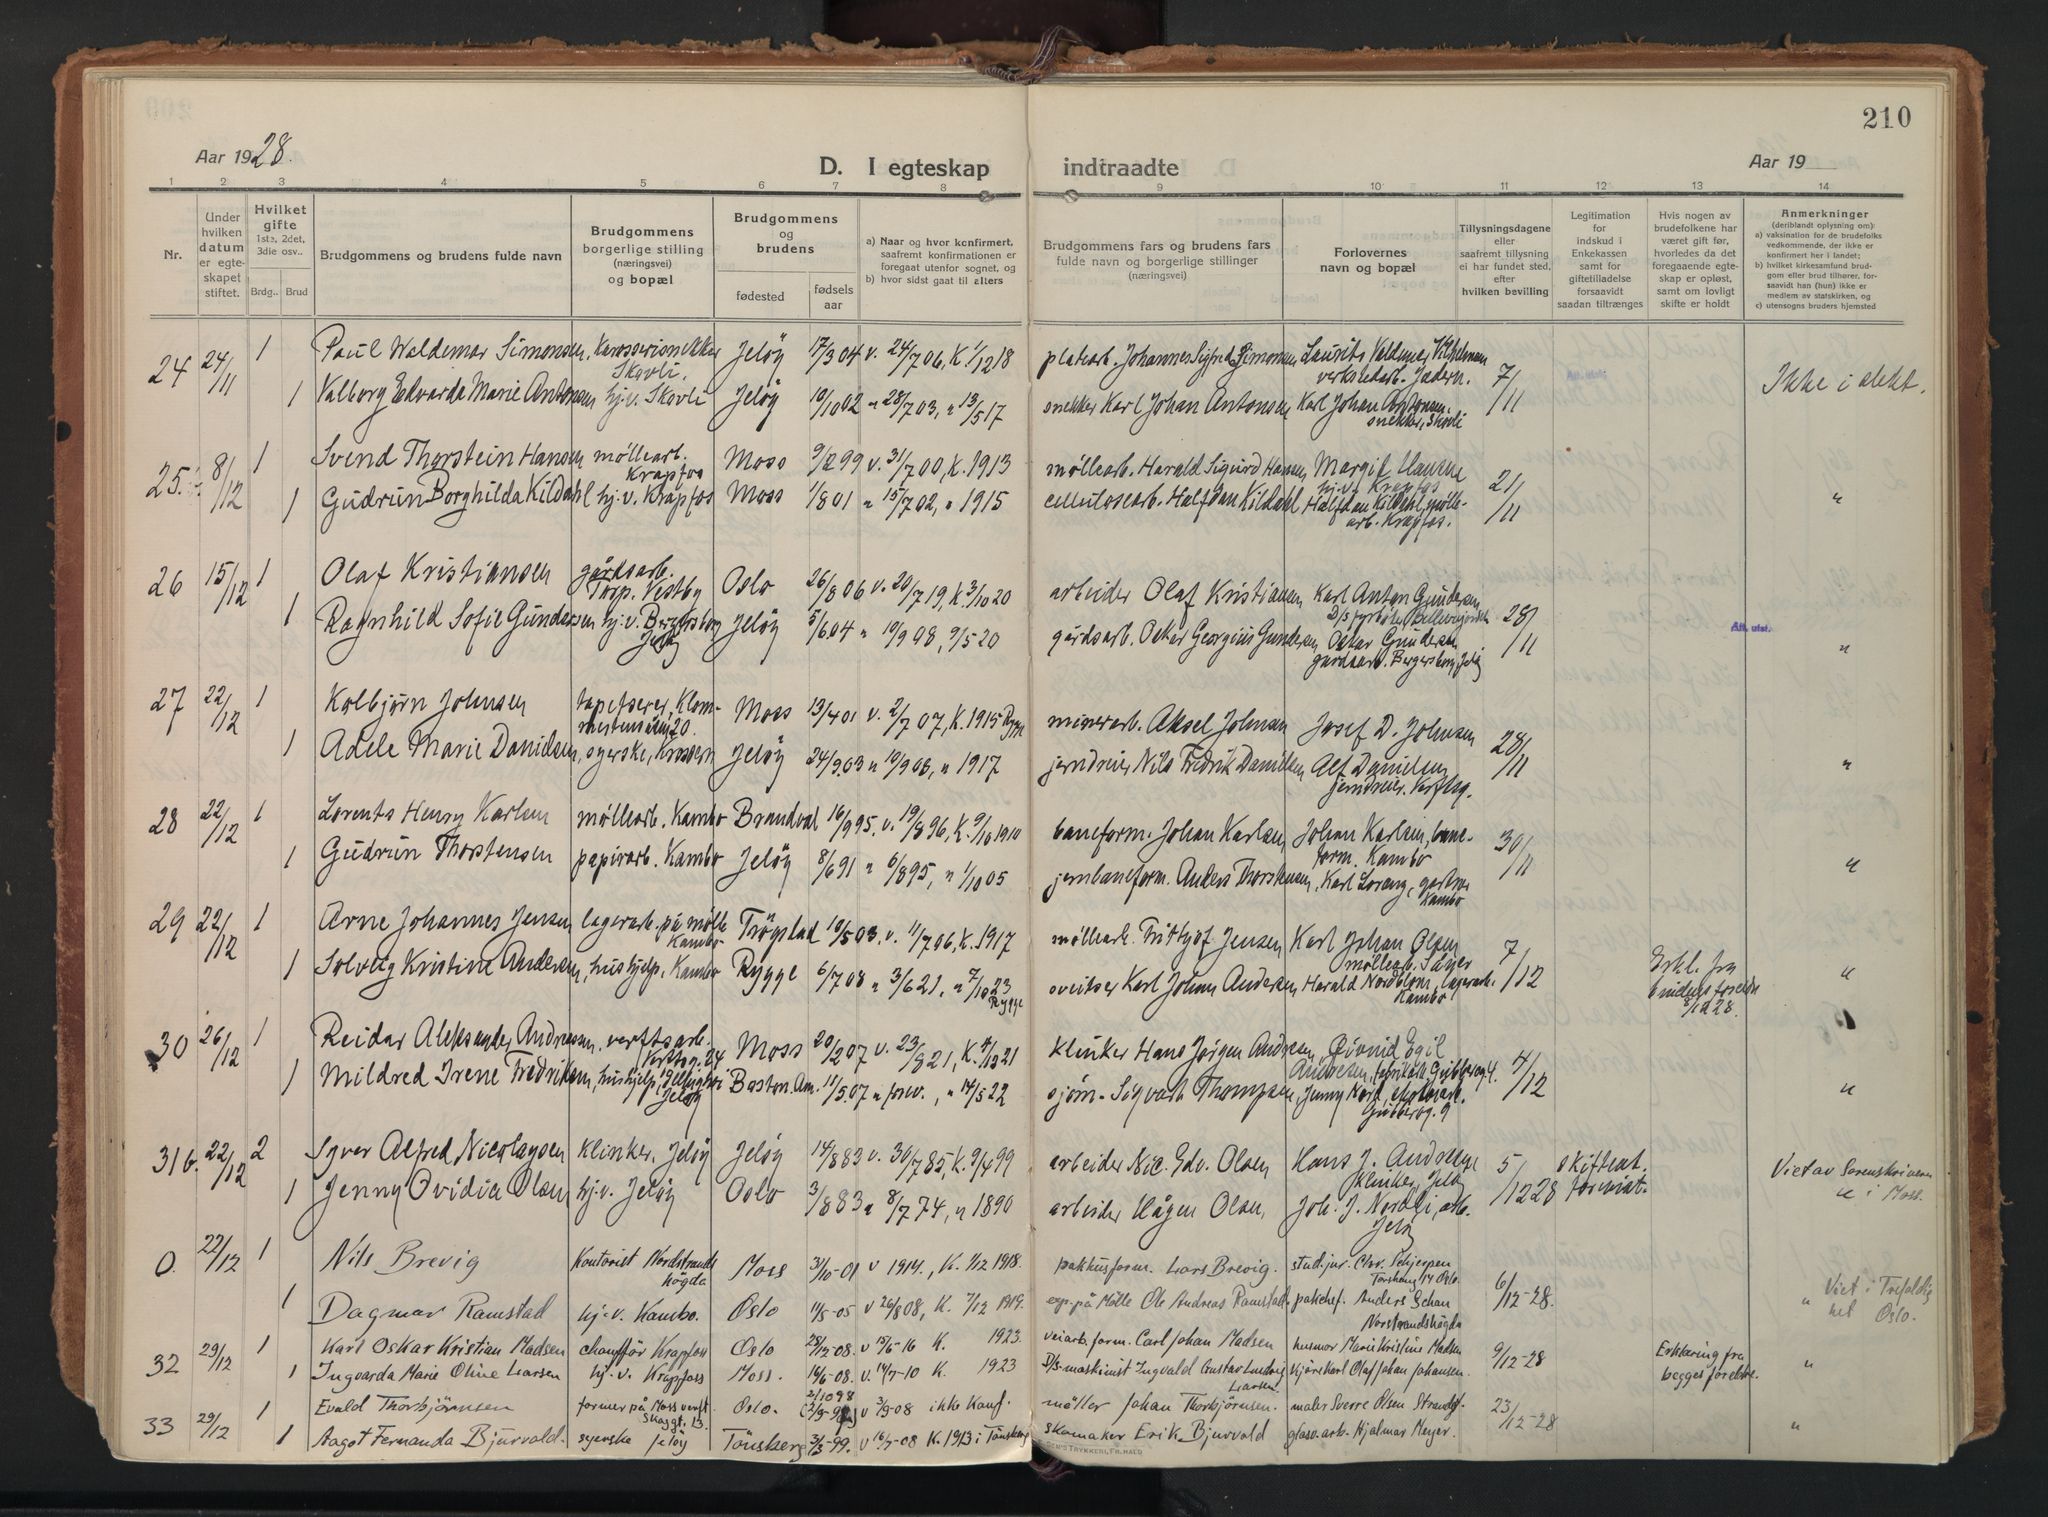 210
Aar 1928.
D. I egteskap indtraadte
Aar 19
1 2 3 4 5 6 7 8 9 10 11 12 13 14
Nr.
Under hvilken datum er egteskapet stiftet.
Hvilket gifte 1ste, 2det, 3die osv.. Brdg.. Brud
Brudgommens og brudens fulde navn
Brudgommens borgerlige stilling (næringsvei) og bopæl
Brudgommens og brudens fødested fødselsaar
a) Naar og hvor konfirmert, saafremt konfirmationen er foregaat utenfor sognet, og b) hvor sidst gaat til alters
Brudgommens fars og brudens fars fulde navn og borgerlige stillinger (næringsvei)
Forlovernes navn og bopæl
Tillysningsdagene eller saafremt tillysning ei har fundet sted, efter hvilken bevilling
Legitimation for indskud i Enkekassen samt for giftetilladelse forsaavidt saadan tiltrænges
Hvis nogen av brudefolkene har været gift før, hvorledes da det foregaaende egteskap er opløst, samt om lovligt skifte er holdt
Anmerkninger (deriblandt oplysning om): a) vaksination for de brudefolks vedkommende, der ikke er konfirmert her i landet; b) hvilket kirkesamfund brudgom eller brud tilhører, forsaavidt han (hun) ikke er medlem av statskirken, og c) utensogns bruders hjemsted
24 24/11 1 Paul Waldemar Simonsen, Karosserisnekker Skovli. Jeløy 17/3 04 v. 24/7 06, K. 1/12 18 platearb. Johannes Sigfred Simonsen Laurits Valdemar Vilhelmsen verkstedarb. Jædern. 7/11 Ikke i slekt.
1 Valborg Edvarda Marie Antonsen hj.v. Skovli Jeløy 10/10 02 " 28/7 03, " 13/5 17 snekker Karl Johan Antonsen Karl Johan Antonsen snekker, Skovli
25. 8/12 1 Svend Thorstein Hansen møllearb. Krapfos Moss 9/12 99 v. 31/7 00, K. 1913 møllearb. Harald Sigurd Hansen Margit Hansen hj.v. Krapfos 21/11 "
1 Gudrun Borghilda Kildahl hj.v. Krapfos Moss 1/8 01 " 15/7 02, " 1915 cellulosearb. Halfdan Kildahl Halfdan Kildahl, møllearb. Krapfos.
26 15/12 1 Olaf Kristiansen gårdsarb. Torp. Vestby Oslo 26/8 06 v. 20/7 19, K. 3/10 20 arbeider Olaf Kristiansen Karl Anton Gundersen 28/11 "
1 Ragnhild Sofie Gundersen hj.v. Bergersborg Jeløy Jeløy 5/6 04 " 19/9 08, 9/5 20 gårdsarb. Oskar Georgius Gundersen Oskar Gundersen gårdsarb. Bergersborg, Jeløy
Att. utst.
27 22/12 1 Kolbjørn Johnsen tapetserer, Moss 13/4 01 v. 2/7 07, K. 1915 Rygge minerarb. Aksel Johnsen Josef D. Johnsen 28/11 "
1 Adele Marie Danielsen, syerske, Krossern Jeløy 24/9 03 " 10/9 08, " 1917 jerndreier Nils Fredrik Danielsen Alf Danielsen jerndreier. Verftsg.
28 22/12 1 Lorents Henry Karlsen møllearb. Kambo Brandval 16/9 95. v. 19/8 96, K. 9/10 1910 baneform. Johan Karlsen Johan Karlsen, baneform. Kambo 30/11 "
1 Gudrun Thorstensen papirarb. Kambo Jeløy 8/6 91 " 6/8 95, " 1/10 05 jernbaneform. Anders Thorstensen, Karl Lorang, Kambo
29 22/12 1 Arne Johannes Jensen lagerarb. på mølle Kambo Trögstad 10/5 03, v. 11/7 06, K. 1917 møllearb. Fritjof Jensen Karl Johan Olsen møllearb. 7/12 "
1 Solveig Kristine Andersen, hushjelp, Kambo Rygge 6/7 08 " 3/6 21, " 7/10 23 Rygge sveitser Karl Johan Andersen Harald Nordblom, lagerarb. Kambo Erkl. fra brudens foreldre 8/12 28.
30 26/12 1 Reidar Aleksander Andresen verftsarb. Verftsg. 24 Moss 20/2 07 v. 23/8 21, K. 4/12 21 klinker Hans Jørgen Andresen, Øivind Egil Andresen, Gubberog. 4. 4/12 "
1 Mildred Irene Fredriksen, hushjelp, Jeløy Boston. Am. 11/5.07 " forev., " 14/5 22 sjøm. Sigvart Thompsen, Jenny Gubberog. 9
31 b. 22/12 2 Syver Alfred Nicolaysen klinker, Jeløy Jeløy 14/8 83 v. 30/7 85, K. 9/4 99 arbeider Nic. Edv. Olsen Hans J. Andresen klinker, Jeløy 5/12 28 skifteat. forevist. Viet av Sorenskriveren i Moss.
1 Jenny Ovidia Olsen hj.v. Jeløy Oslo 3/8 83 " 8/7 74, " 1890 arbeider Hågen Olsen, Joh. J. Nordli, arb. Jeløy
0. 22/12 1 Nils Brevig Kontorist Nordstrandshögda Moss 31/10-01 v 1914., K. 1/12 1918. pakhusform. Lars Brevig. stud.jur. Chr. Schjerpen Oslo. 6/12-28. " Viet i Trefoldighet Oslo.
1 Dagmar Ramstad hj.v. Kambo. Oslo 11/5-05 v 26/8 08, K. 7/12 1919. exp. på Mölle Ole Andreas Ramstad. pakchef. Anders Schau Norstrandshögda
32 29/12 1 Karl Oskar Kristian Madsen chaufför Krapfoss Oslo 28/12-08. v 15/6-16 K. 1923. veiarb.form. Carl Johan Madsen husmor Marie Kristine Madsen 9/12-28 Erklæring fra begges foreldre. "
1 Ingvarda Marie Oline Larsen hj. v. Krapfoss Moss. 14/6-08. v. 14/7-10 K. 1923 D/s-maskinist Ingvald Gustav Ludvig Larsen kjörekarl Olaf Johan Johansen.
33 29/12 1 Evald Thorbjörnsen former på Moss verft Skoggt. 13 Oslo. 2/10 98 v 3/9-08 ikke Konf. möller Johan Thorbjörnsen. maler Sverre Olsen 23/12-28 "
1 Aagot Fernanda Bjurvald. syerske Jeløy Tönsberg 3/3-99. v 16/7-08 K. 1913 i Tönsberg skomaker Erik Bjurvald glasv.arb. Hjalmar Meyer.
TRYKKERI, FR.HALD